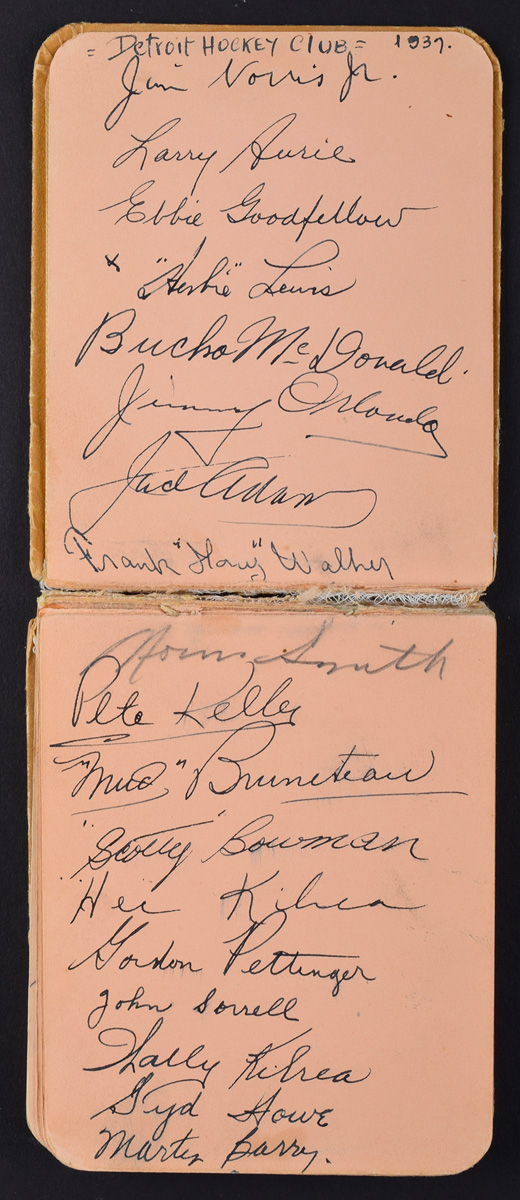 = Detroit HOCKEY CLUB = 1937.
Jim Norris Jr.
Larry Aurie
Ebbie Goodfellow
x "Herbie" Lewis
Bucko McDonald.
Jimmy Orlando
Jack Adams
Frank "Honey" Walker
Norm Smith
Pete Kelly
"Mud" Bruneteau
"Scotty" Bowman
Hec Kilrea
Gordon Pettinger
John Sorrell
Wally Kilrea
Syd Howe
Marty Barry.